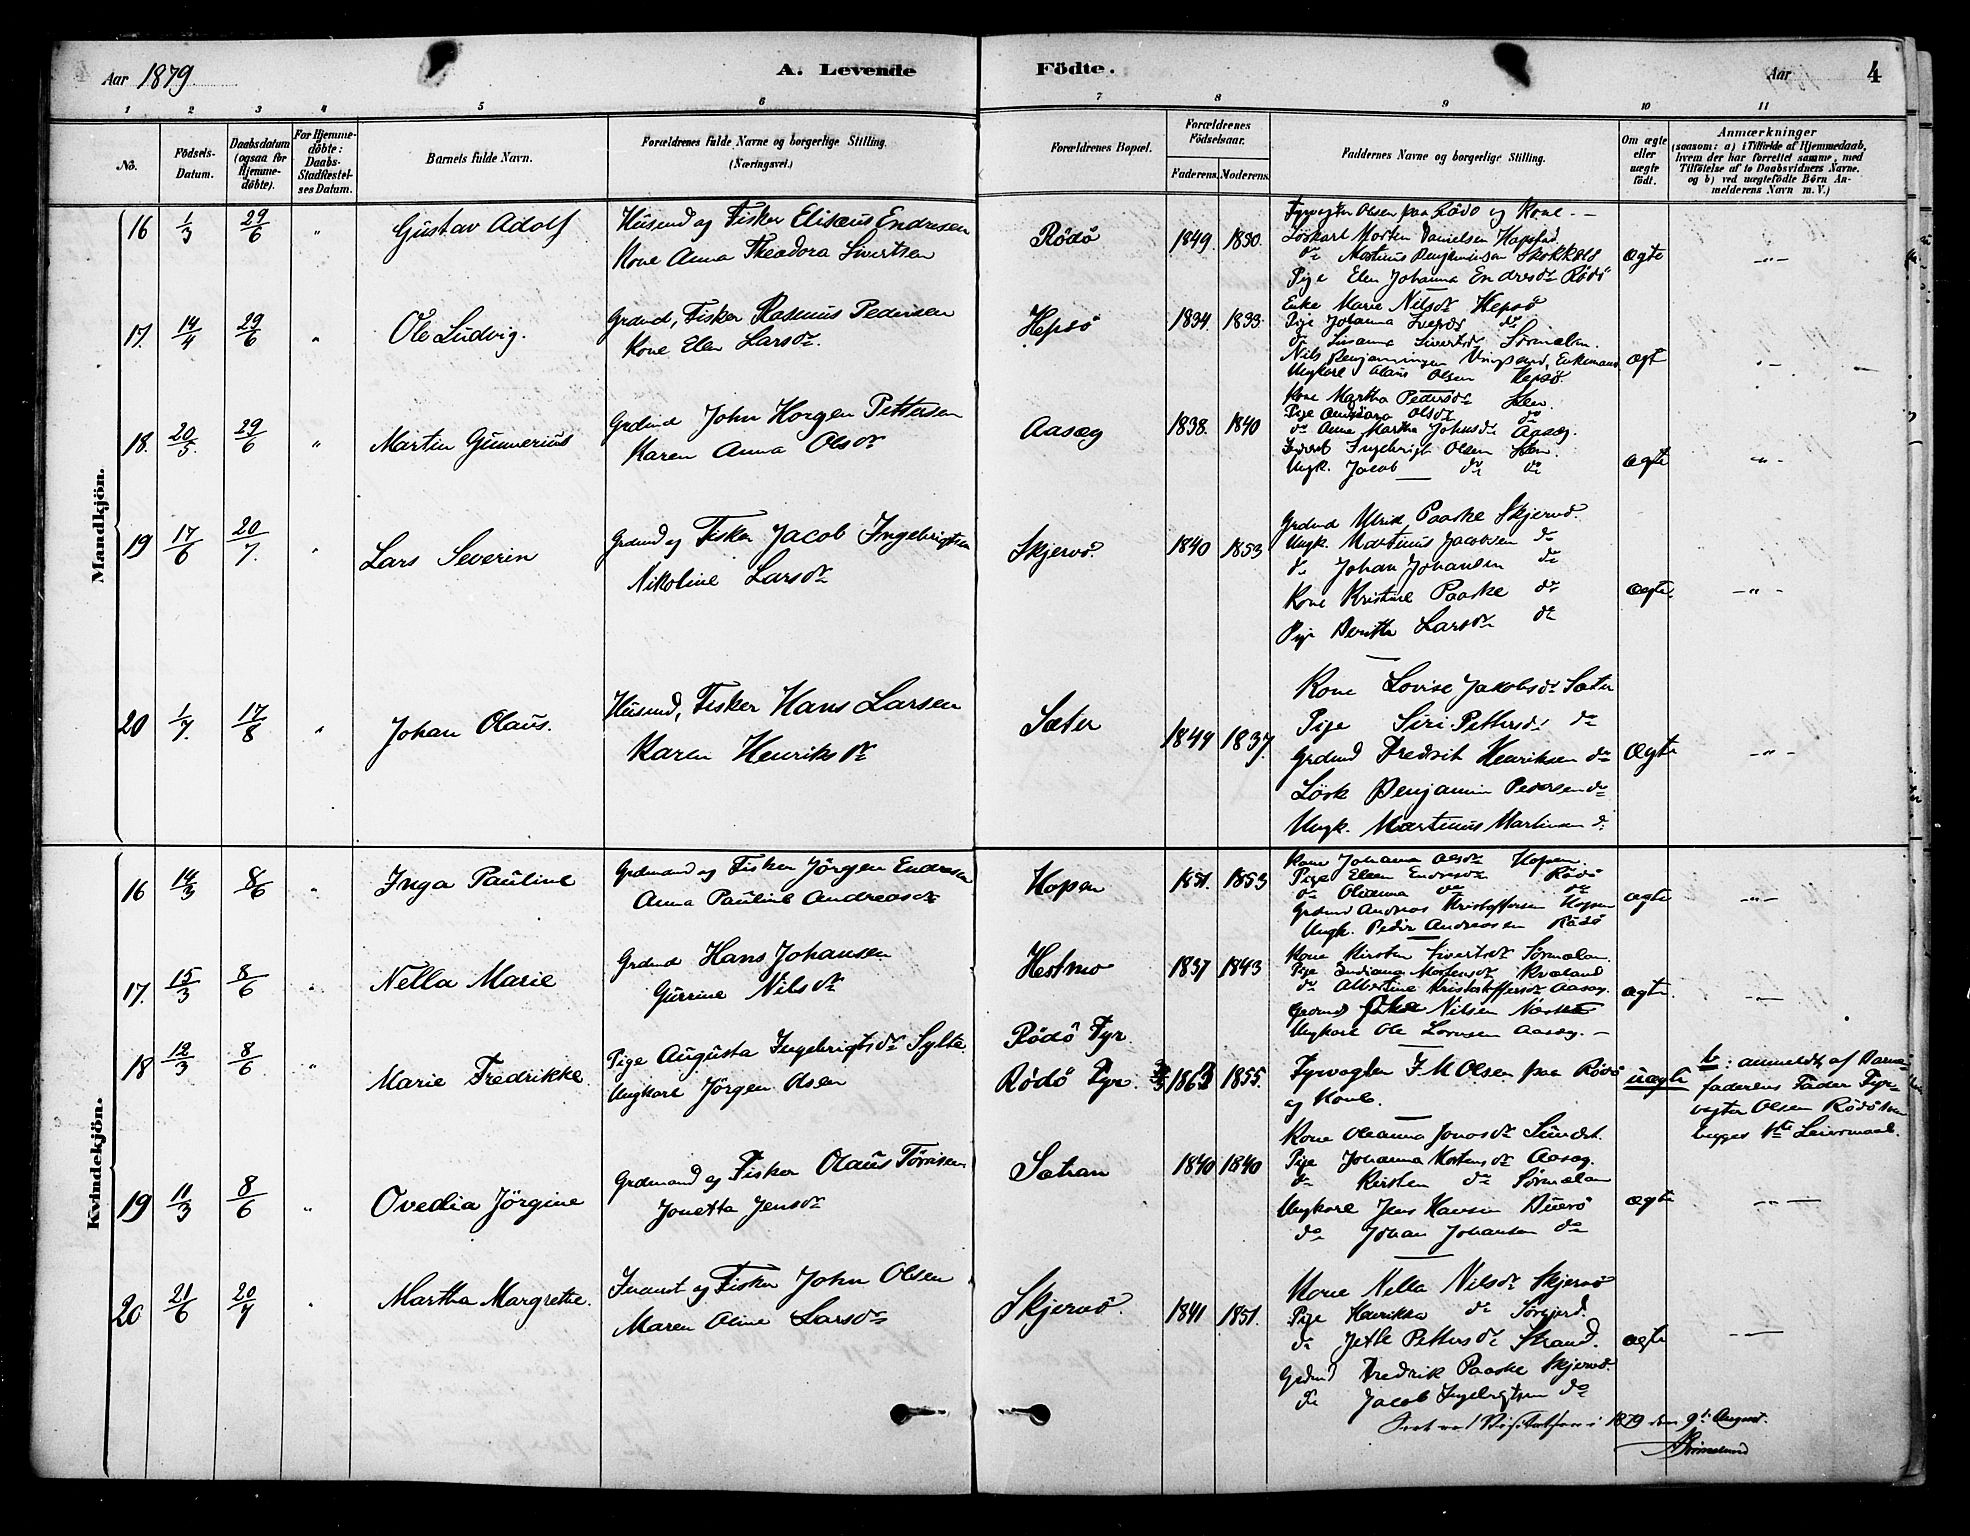 Aar 1879
A. Levende
Födte.
Aar
4
1 2 3 4 5 6 7 8 9 10 11
No.
Födsels-
Datum.
Daabsdatum
(ogsaa for
Hjemme-
döbte).
For Hjemme-
döbte:
Daabs-
Stadfæstel-
ses Datum.
Barnets fulde Navn.
Forældrenes fulde Navne og borgerlige Stilling.
(Næringsvei.)
Forældrenes Bopæl.
Forældrenes
Födselsaar.
Faderens. Moderens.
Faddernes Navne og borgerlige Stilling.
Om ægte
eller
uægte
födt.
Anmærkninger
(saasom: a) i Tilfælde af Hjemmedaab,
hvem der har forrettet samme, med
Tilföielse af to Daabsvidners Navne.
og b) ved uægtefödte Börn An-
melderens Navn m. V.)
Mandkjön.
16 1/3 29/6 " Gustav Adolf
Husmd og Fisker Elisæus Endresen
Kone Anna Theodora Sivertsen
Rödö 1849. 1830.
Fyrvogter Olsen paa Rödö og Kone. -
Löskarl Morten Danielsen Hopstad
do Martinus Benjaminsen
Pige Elen Johanna Endresdr Rödö
Ægte - " -
17. 14/4 29/6 " Ole Ludvig.
Grdmd, Fisker Rasmus Pedersen
Kone Elen Larsdr.
Hepsö 1834. 1833.
Enke Marie Nilsdr Hepsö
Pige Johanna do
do Susanna Sivertsdr Sörmælan.
Nils Benjaminsen Vingsand, Enkemand
Ungkarl Olaus Olsen Hepsö.
Ægt - " -
18. 20/5. 29/6 " Martin Gunnerius
Grdmd John Horgen Pettersen
Karen Anna Olsdr
Aasæg 1838. 1840
Kone Martha Pedersdr Sten.
Pige Olsdr do
do Anna Martha Johnsdr Aasæg.
Inderst Ingebrigt Olsen Sten.
Ungk. Jacob do do
Ægte - " -
19 17/6 20/7. " Lars Severin
Grdmd og Fisker Jacob Ingebrigtsen
Nikoline Larsdr
Skjervö. 1840 1853
Grdmd Ulrik Paaske Skjervö.
Ungk. Martinus Jacobsen do
do Johan Johansen do
Kone Kristine Paaske do
Pige Beritha Larsdr do
Ægte. - " -
20 1/7. 17/8 " Johan Olaus.
Husmd, Fisker Hans Larsen
Karen Henriksdr
Sæter 1844 1837.
Kone Lovise Jakobsdr Sæter
Pige Siri Pettersdr do
Grdmd Fredrik Henriksen do
Lösk Benjamin Pedersen do
Ungk. Martinus Martinsen do
Ægte - " -
Kvindekjön.
16 14/3 8/6 " Inga Pauline
Grdmand og Fisker Jörgen Endresen
Anna Pauline Andreasdr
Hopen 1851. 1853
Kone Johanna Olsdr Hopen.
Pige Elen Endresdr Rödö
do Olianna do do
Grdmd Andreas Kristoffersen Hopen
Ungk. Peder Andreassen Rödö
Ægte - " -
17. 15/3 8/6 " Nella Marie
Grdmd Hans Johansen
Gurrine Nilsdr
Hestmo 1837 1843
Kone Kirsten Sivertsdr Sörmælan.
Pige Indiana Mortensdr Kvæland
do Albertine Kristoffersdr Aasæg.
Grdmd Nilsen
Ungkarl Ole Aasæg. -
Ægte. - " -
18 12/3 8/6 " Marie Fredrikke.
Pige Augusta Ingebrigtsdr Sylte.
Ungkarl Jörgen Olsen
Rödö Fyr.
Rödö Fyr. 1863 1855.
Fyrvogter F. M Olsen paa Rödö
og Kone.
Uægte
b: anmeldt af Barne-
faderens Fader Fyr-
vogter Olsen Rödö. Den
begges 1ste Leiermaal.
19 11/3 8/6 " Ovedia Jörgine
Grdmand og Fisker Olaus Törrisen
Jonetta Jensdr
Sætran 1840 1840
Kone Oleanna Jonasdr Sundet.
Pige Johanna Mortensdr Aasæg.
do Kirsten do Sörmælan
Ungkarl Jens Hansen Buerö
do Johan Johansen do
Ægte - " -
20 21/6 20/7 " Martha Margrethe.
Inderst og Fisker John Olsen
Maren Oline Larsdr
Skjervö. 1841 1851.
Kone Nella Nilsdr Skjervö
Pige Henrikka do Sörgjerd.
do Jette Pettersdr Strand.
Grdmd Fredrik Paaske Skjervö.
do Jacob Ingebrigtsen do
Ægte - " -
Seet ved Visitatsen i 1879 den 9de August.